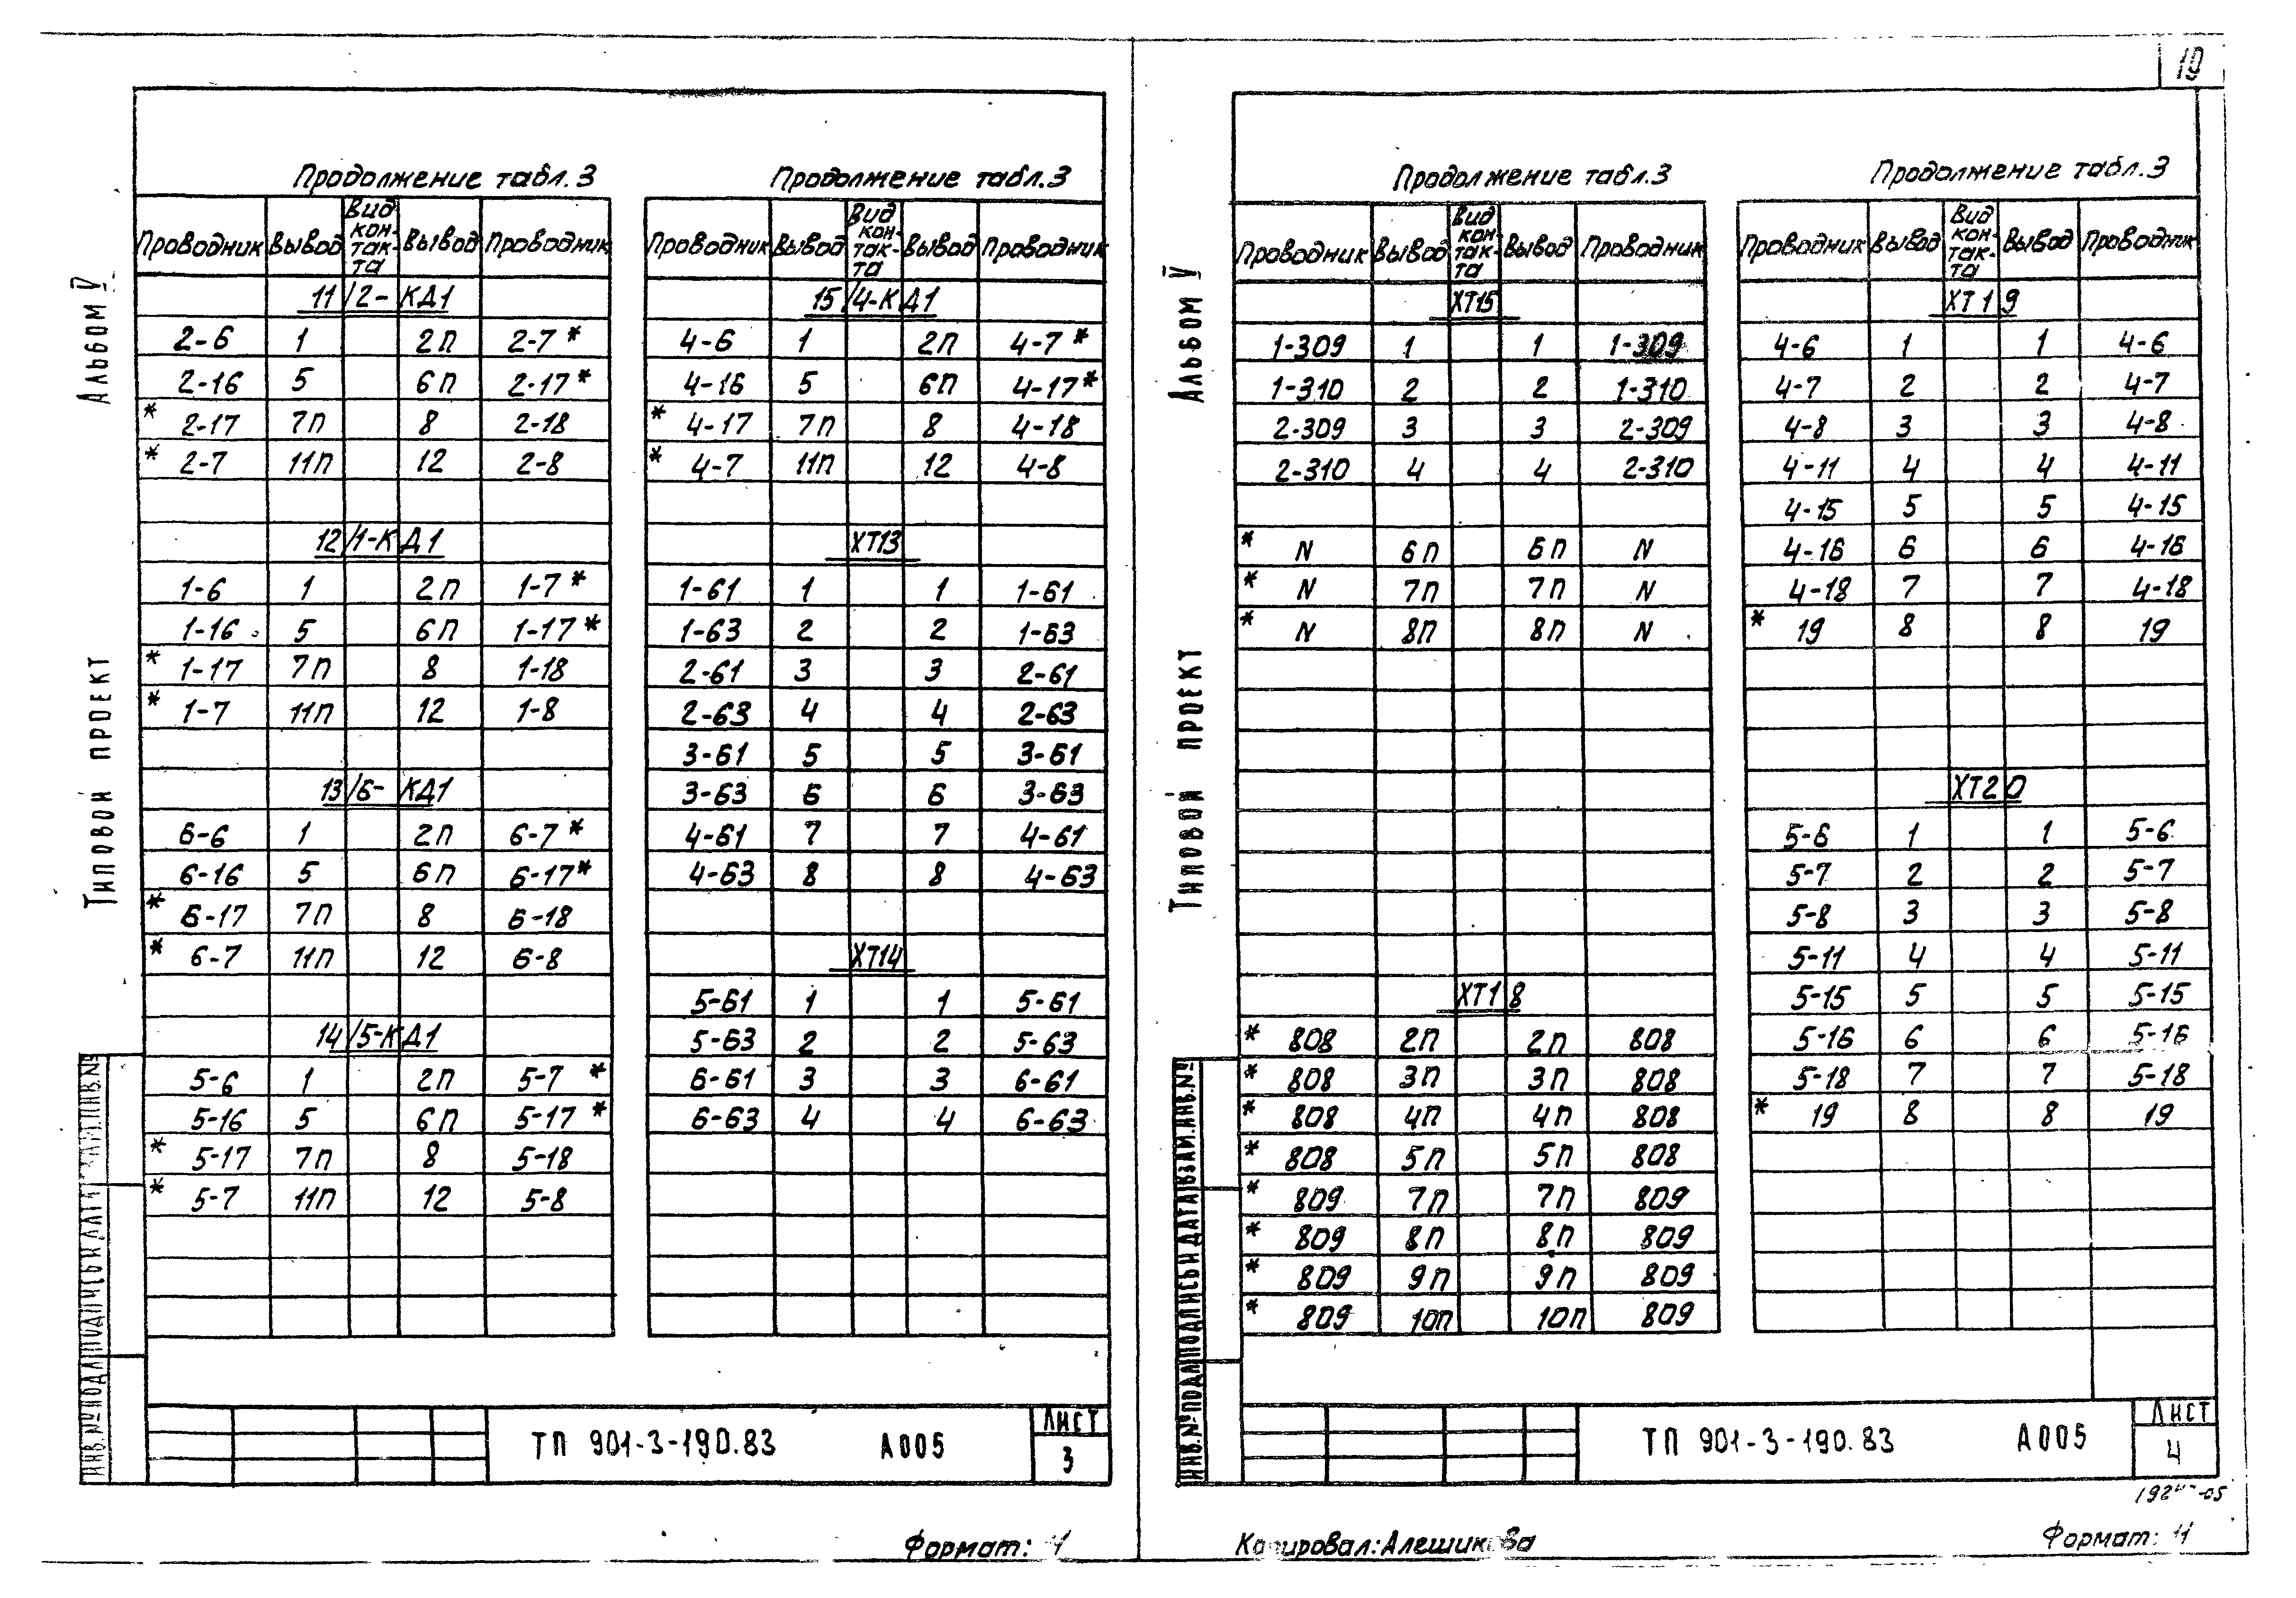 19
Альбом V
Типовой проект
Продолжение табл.3
Проводник Вывод Вид контакта Вывод Проводник
11/2-КД1
2-6 1 2П 2-7*
2-16 5 6П 2-17*
* 2-17 7П 8 2-18
* 2-7 11П 12 2-8
12/1-КД1
1-6 1 2П 1-7*
1-16 5 6П 1-17*
* 1-17 7П 8 1-18
* 1-7 11П 12 1-8
13/6-КД1
6-6 1 2П 6-7*
6-16 5 6П 6-17*
* 6-17 7П 8 6-18
* 6-7 11П 12 6-8
14/5-КД1
5-6 1 2П 5-7 *
5-16 5 6П 5-17 *
* 5-17 7П 8 5-18
* 5-7 11П 12 5-8
Продолжение табл.3
Проводник Вывод Вид контакта Вывод Проводник
15/4-КД1
4-6 1 2П 4-7*
4-16 5 6П 4-17*
* 4-17 7П 8 4-18
* 4-7 11П 12 4-8
ХТ13
1-61 1 1 1-61
1-63 2 2 1-63
2-61 3 3 2-61
2-63 4 4 2-63
3-61 5 5 3-61
3-63 6 6 3-63
4-61 7 7 4-61
4-63 8 8 4-63
ХТ14
5-61 1 1 5-61
5-63 2 2 5-63
6-61 3 3 6-61
6-63 4 4 6-63
ИНВ.№ПОДЛ
ТП 901-3-190.83 А005
Лист
3
Формат:
Альбом V
Типовой проект
Продолжение табл.3
Проводник Вывод Вид контакта Вывод Проводник
ХТ15
1-309 1 1 1-309
1-310 2 2 1-310
2-309 3 3 2-309
2-310 4 4 2-310
* N 6П 6П N
* N 7П 7П N
* N 8П 8П N
ХТ18
* 808 2П 2П 808
* 808 3П 3П 808
* 808 4П 4П 808
* 808 5П 5П 808
* 809 7П 7П 809
* 809 8П 8П 809
* 809 9П 9П 809
* 809 10П 10П 809
Продолжение табл.3
Проводник Вывод Вид контакта Вывод Проводник
ХТ19
4-6 1 1 4-6
4-7 2 2 4-7
4-8 3 3 4-8
4-11 4 4 4-11
4-15 5 5 4-15
4-16 6 6 4-16
4-18 7 7 4-18
* 19 8 8 19
ХТ20
5-6 1 1 5-6
5-7 2 2 5-7
5-8 3 3 5-8
5-11 4 4 5-11
5-15 5 5 5-15
5-16 6 6 5-16
5-18 7 7 5-18
* 19 8 8 19
ИНВ.№ПОДЛ ПОДПИСЬ И ДАТА ВЗАМ.ИНВ.№
ТП 901-3-190.83 А005
Лист
4
Копировал:Алешикова
Формат: 11